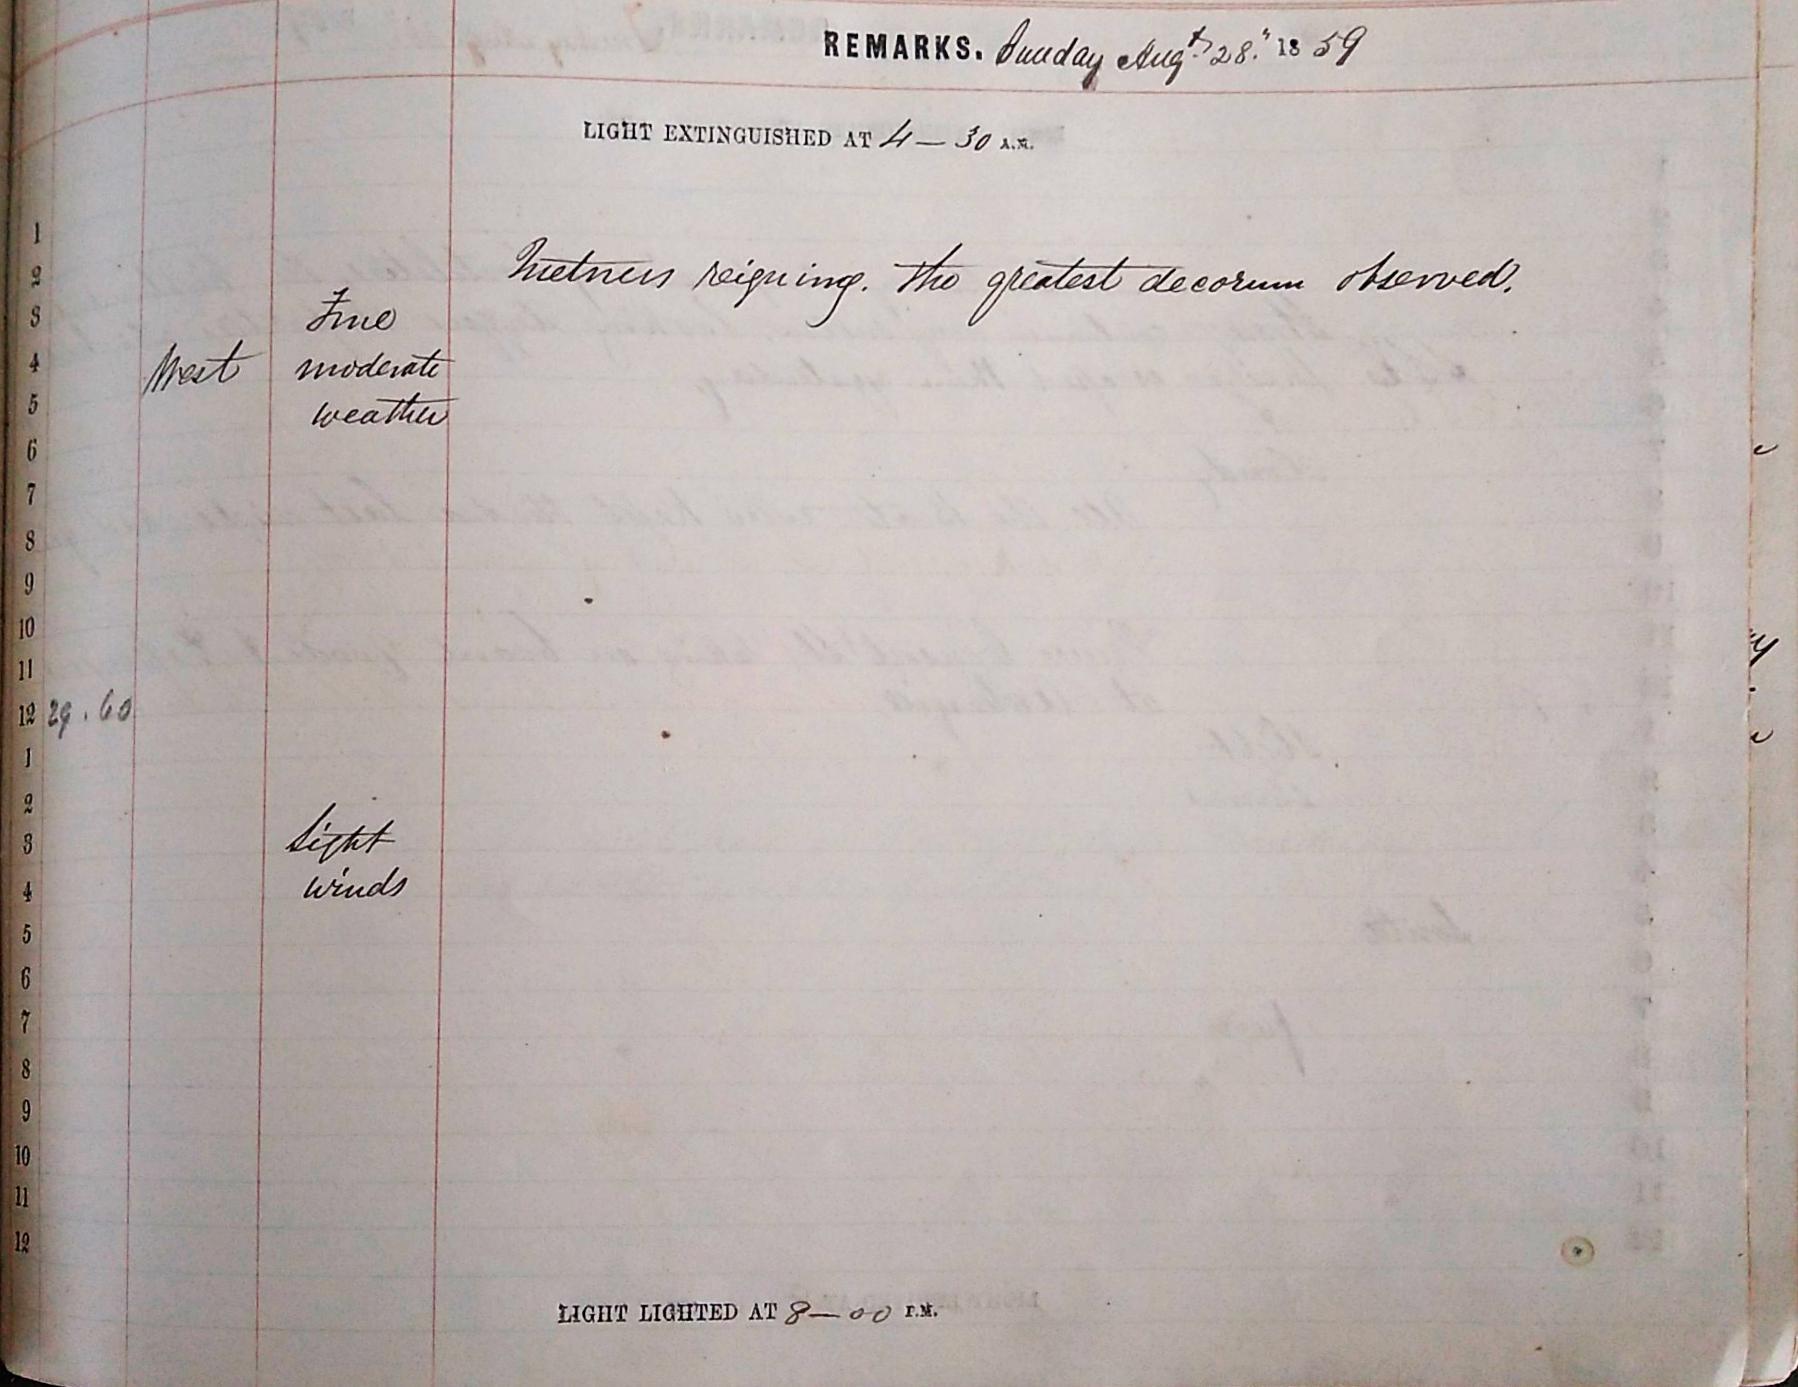 REMARKS. Sunday Augt. 28." 1859
LIGHT EXTINGUISHED AT 4 — 30 A.M.
1
2 Quietness reigning. The greatest decorum observed.
3 Fine
4 West moderate
5 weather
6
7
8
9
10
11
12 29.60
1
2
3 Light
4 winds
5
6
7
8
9
10
11
12
LIGHT LIGHTED AT 8 — 00 P.M.